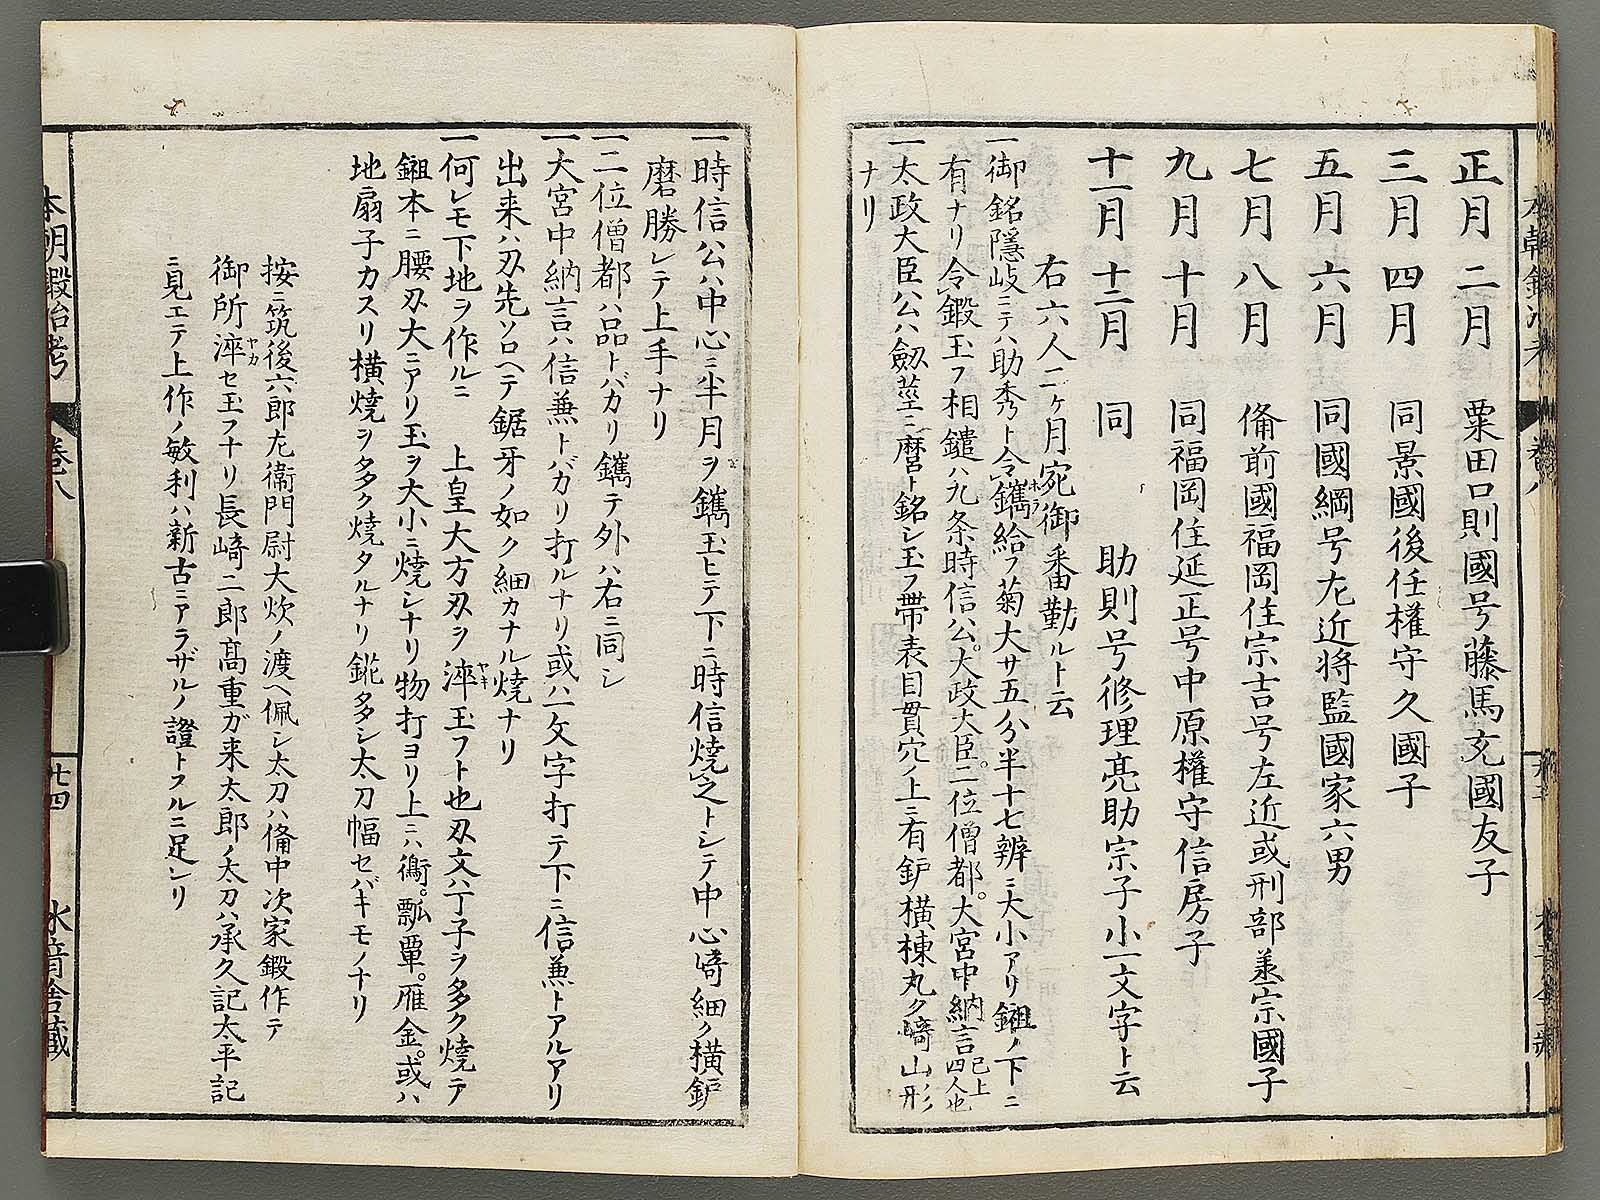 正月 二月 粟田口則國号藤馬亮國友子
三月 四月 同景國後任權守久國子
五月 六月 同國綱号左近将監國家六男
七月 八月 俻前國福岡住宗吉号左近或刑部󠄁丞宗國子
九月 十月 同福岡住延正号中原權守信房子
十一月 十二月 同 助則号修理亮助宗子小一文字ト云
右六人二ヶ月宛御番勤ルト云
一御銘隱岐ニテハ助秀ト令鐫給フ菊大サ五分半十七辨ニ大小アリ鎺ノ下ニ
有ナリ令鍛玉フ相鑓ハ九条時信公。大政大臣。二位僧都。大宮中納言已上四人也
一太政大臣公ハ劔莖ニ麿ト銘シ玉フ帶表目貫穴ノ上ニ有鈩横棟丸ク﨑山形
ナリ
本朝鍛冶考 巻八
一時信公ハ中心ニ半月ヲ鐫玉ヒテ下ニ時信燒之トシテ中心﨑細ク横鈩
磨勝レテ上手ナリ
一二位僧都ハ品トバカリ鐫テ外ハ右ニ同シ
一大宮中納言ハ信蒹トバガリ打ルナリ或ハ一文字打テ下ニ信蒹トアルアリ
出来ハ刃先ソロヘテ鋸牙ノ如ク細カナル燒ナリ
一何レモ下地ヲ作ルニ 上皇大方刃ヲ淬ヤキ玉フト也刃文ハ丁子ヲ多ク燒テ
鎺本ニ腰刃大ニアリ玉ヲ大小ニ燒シナリ物打ヨリ上ニハ鵆。瓢覃。雁金。或ハ
地扇子カスリ横燒ヲ多ク燒タルナリ錵多シ太刀幅セバキモノナリ
按ニ筑後六郎左衛門尉大炊ノ渡ヘ佩シ太刀ハ俻中次家鍛作テ
御所淬ヤカセ玉フナリ長﨑二郎髙重ガ来太郎ノ太刀ハ承久記太平記
ニ見エテ上作ノ敏利ハ新古ニアラザルノ證トスルニ足レリ
本朝鍛冶考 巻八 廿四 水音舎藏